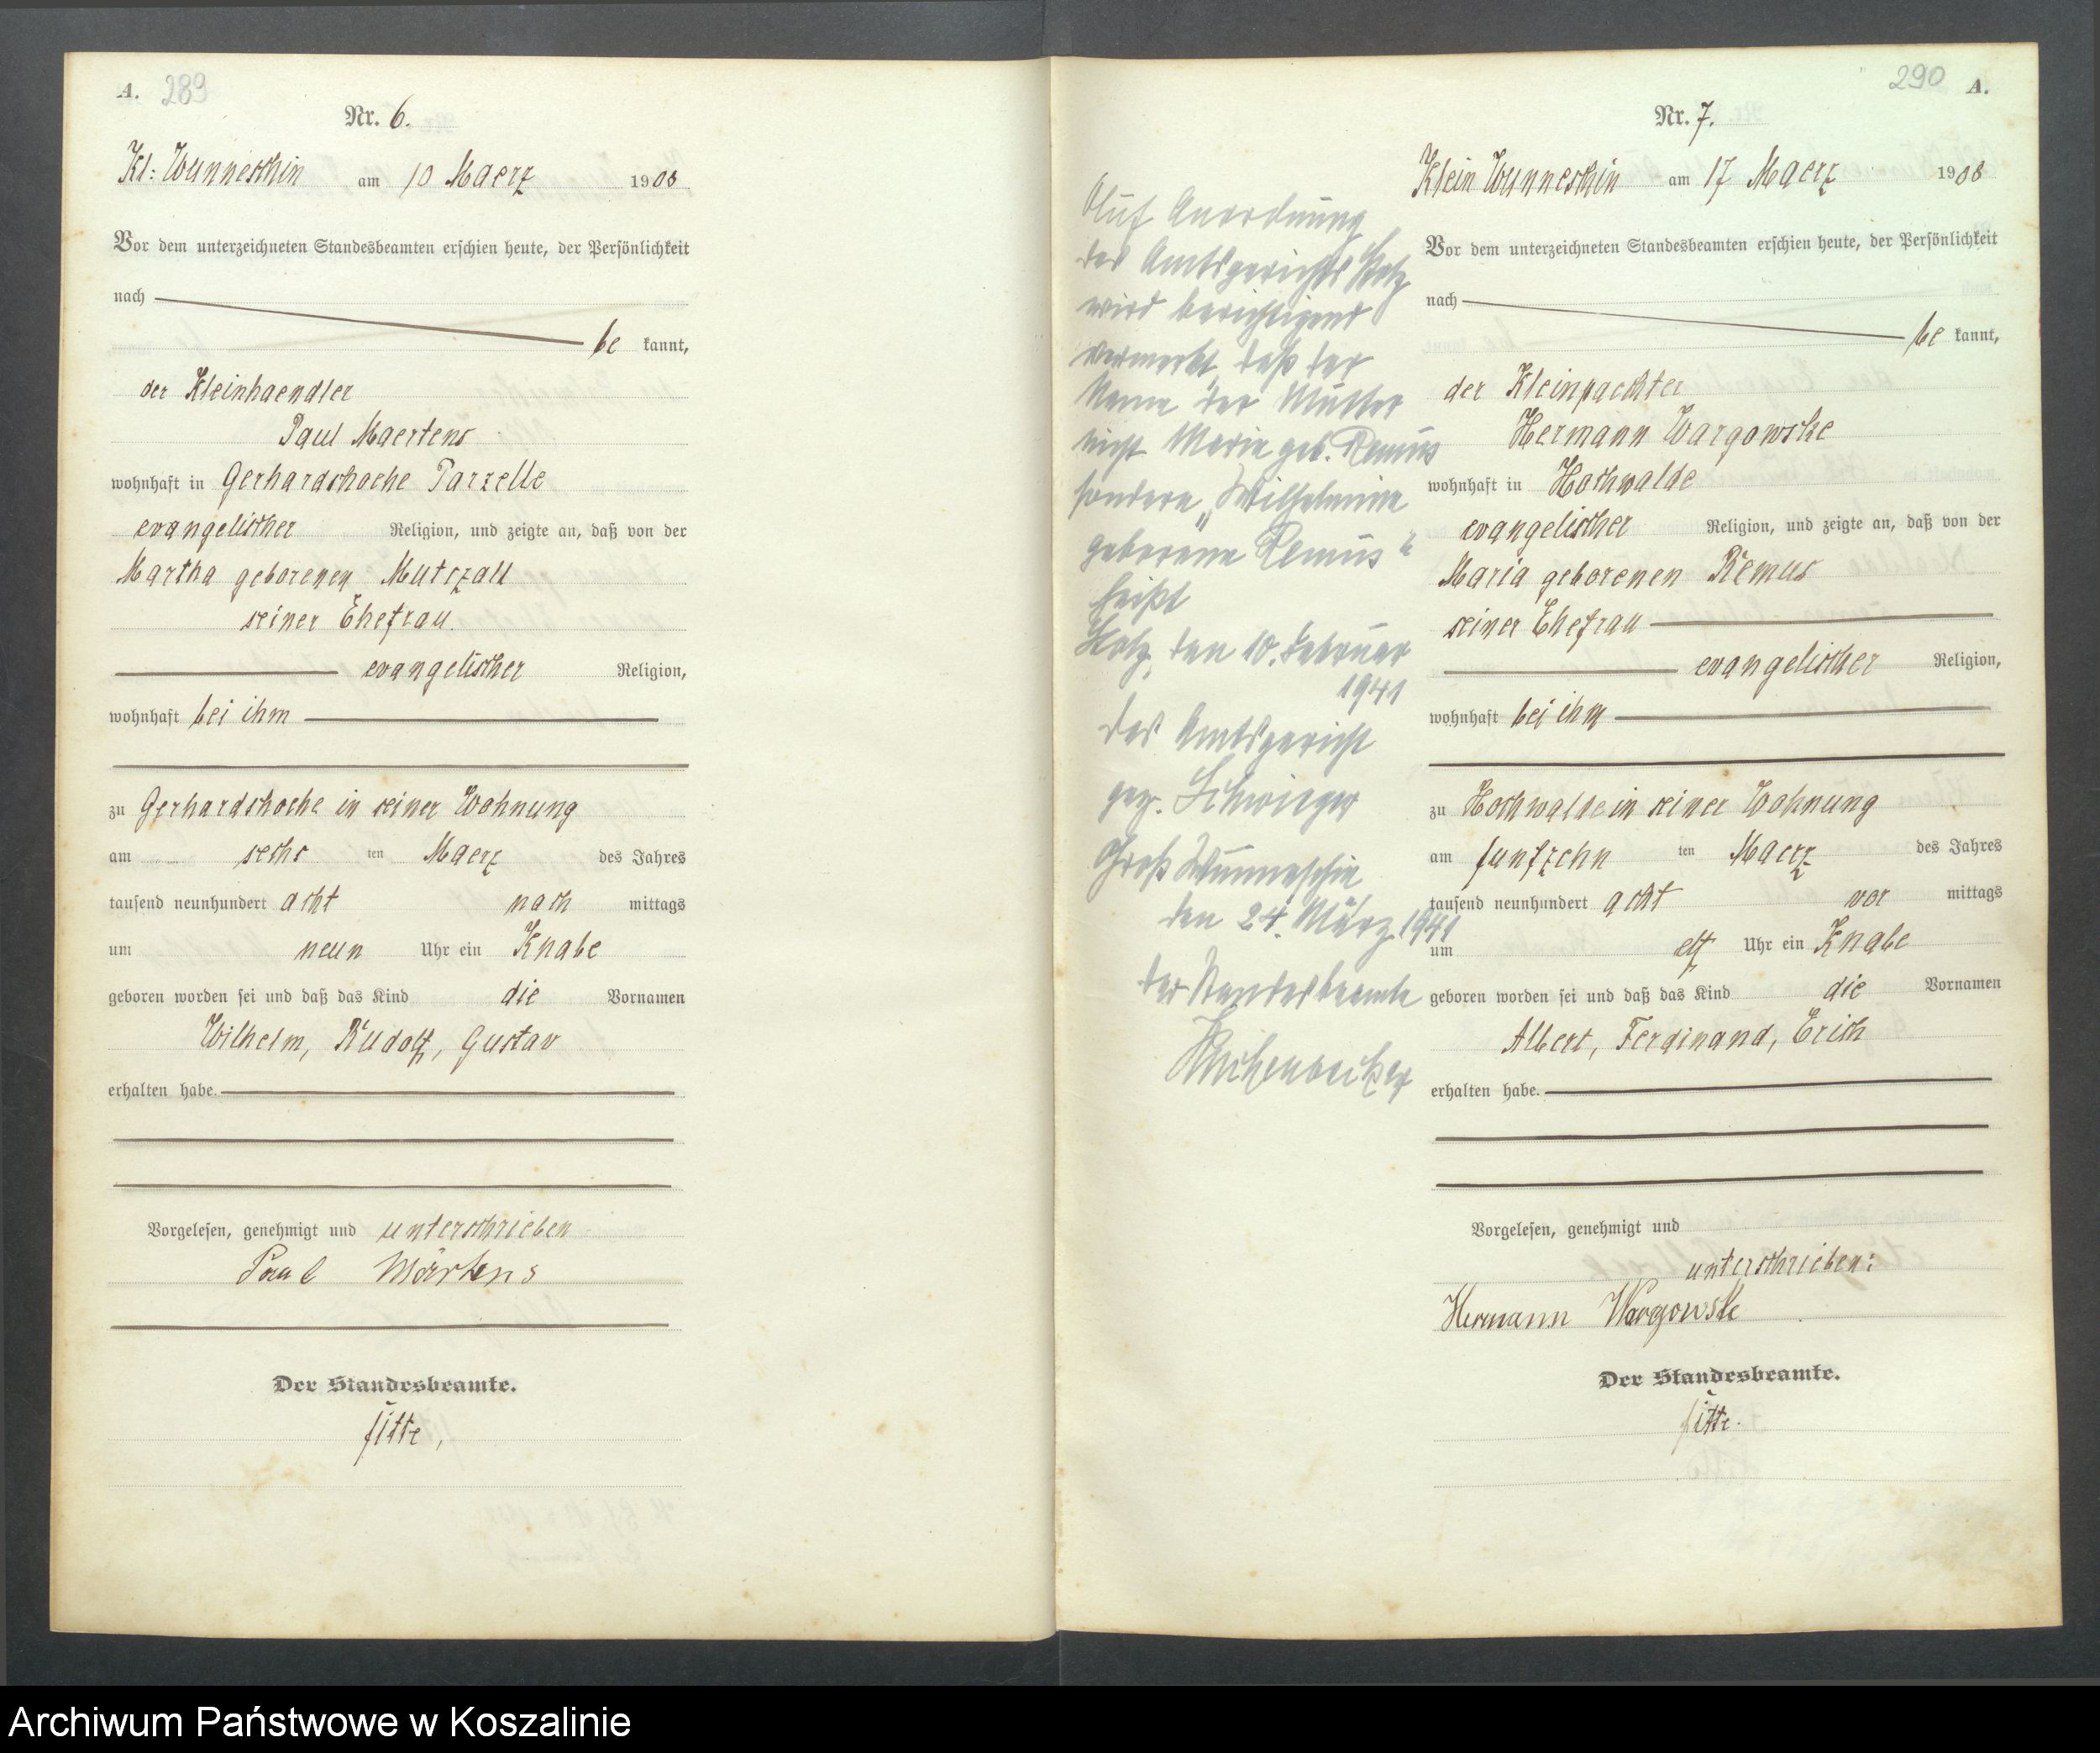 A. 289
Nr. 6.
Kl: Wunneschin am 10 Maerz 1908
Vor dem unterzeichneten Standesbeamten erschien heute, der Persönlichkeit
nach
be kannt,
der Kleinhaendler
Paul Maertens
wohnhaft in Gerhardshoehe Parzelle
evangelischer Religion, und zeigte an, daß von der
Martha geborenen Mutczall
seiner Ehefrau.
evangelischer Religion,
wohnhaft bei ihm
zu Gerhardshoehe in seiner Wohnung
am sechs ten Maerz des Jahres
tausend neunhundert acht nach mittags
um neun Uhr ein Knabe
geboren worden sei und daß das Kind die Vornamen
Wilhelm, Rudolf, Gustav
erhalten habe.
Vorgelesen, genehmigt und unterschrieben
Paul Märtens
Der Standesbeamte.
fitte,
Auf Anordnung
des Amtsgerichts
wird berichtigend
vermerkt, daß der
Name der Mutter
nicht Maria geb. Remus
sondern „Wilhelmine
geborene Remus"
heißt
den 10. Februar
1941
Das Amtsgericht
gez. Schwieger
Groß Wunneschin
den 24. März 1941
Der Standesbeamte
290 A.
Nr. 7.
Klein Wunneschin am 17 Maerz 1908
Vor dem unterzeichneten Standesbeamten erschien heute, der Persönlichkeit
nach
be kannt,
der Kleinpaechter
Hermann Wargowske
wohnhaft in Hochwalde
evangelischer Religion, und zeigte an, daß von der
Maria geborenen Remus
seiner Ehefrau
evangelischer Religion,
wohnhaft bei ihm
zu Hochwalde in seiner Wohnung
am funfzehn ten Maerz des Jahres
tausend neunhundert acht vor mittags
um elf Uhr ein Knabe
geboren worden sei und daß das Kind die Vornamen
Albert, Ferdinand, Erich
erhalten habe.
Vorgelesen, genehmigt und
unterschrieben:
Hermann Wargowske
Der Standesbeamte.
fitte.
Archiwum Państwowe w Koszalinie